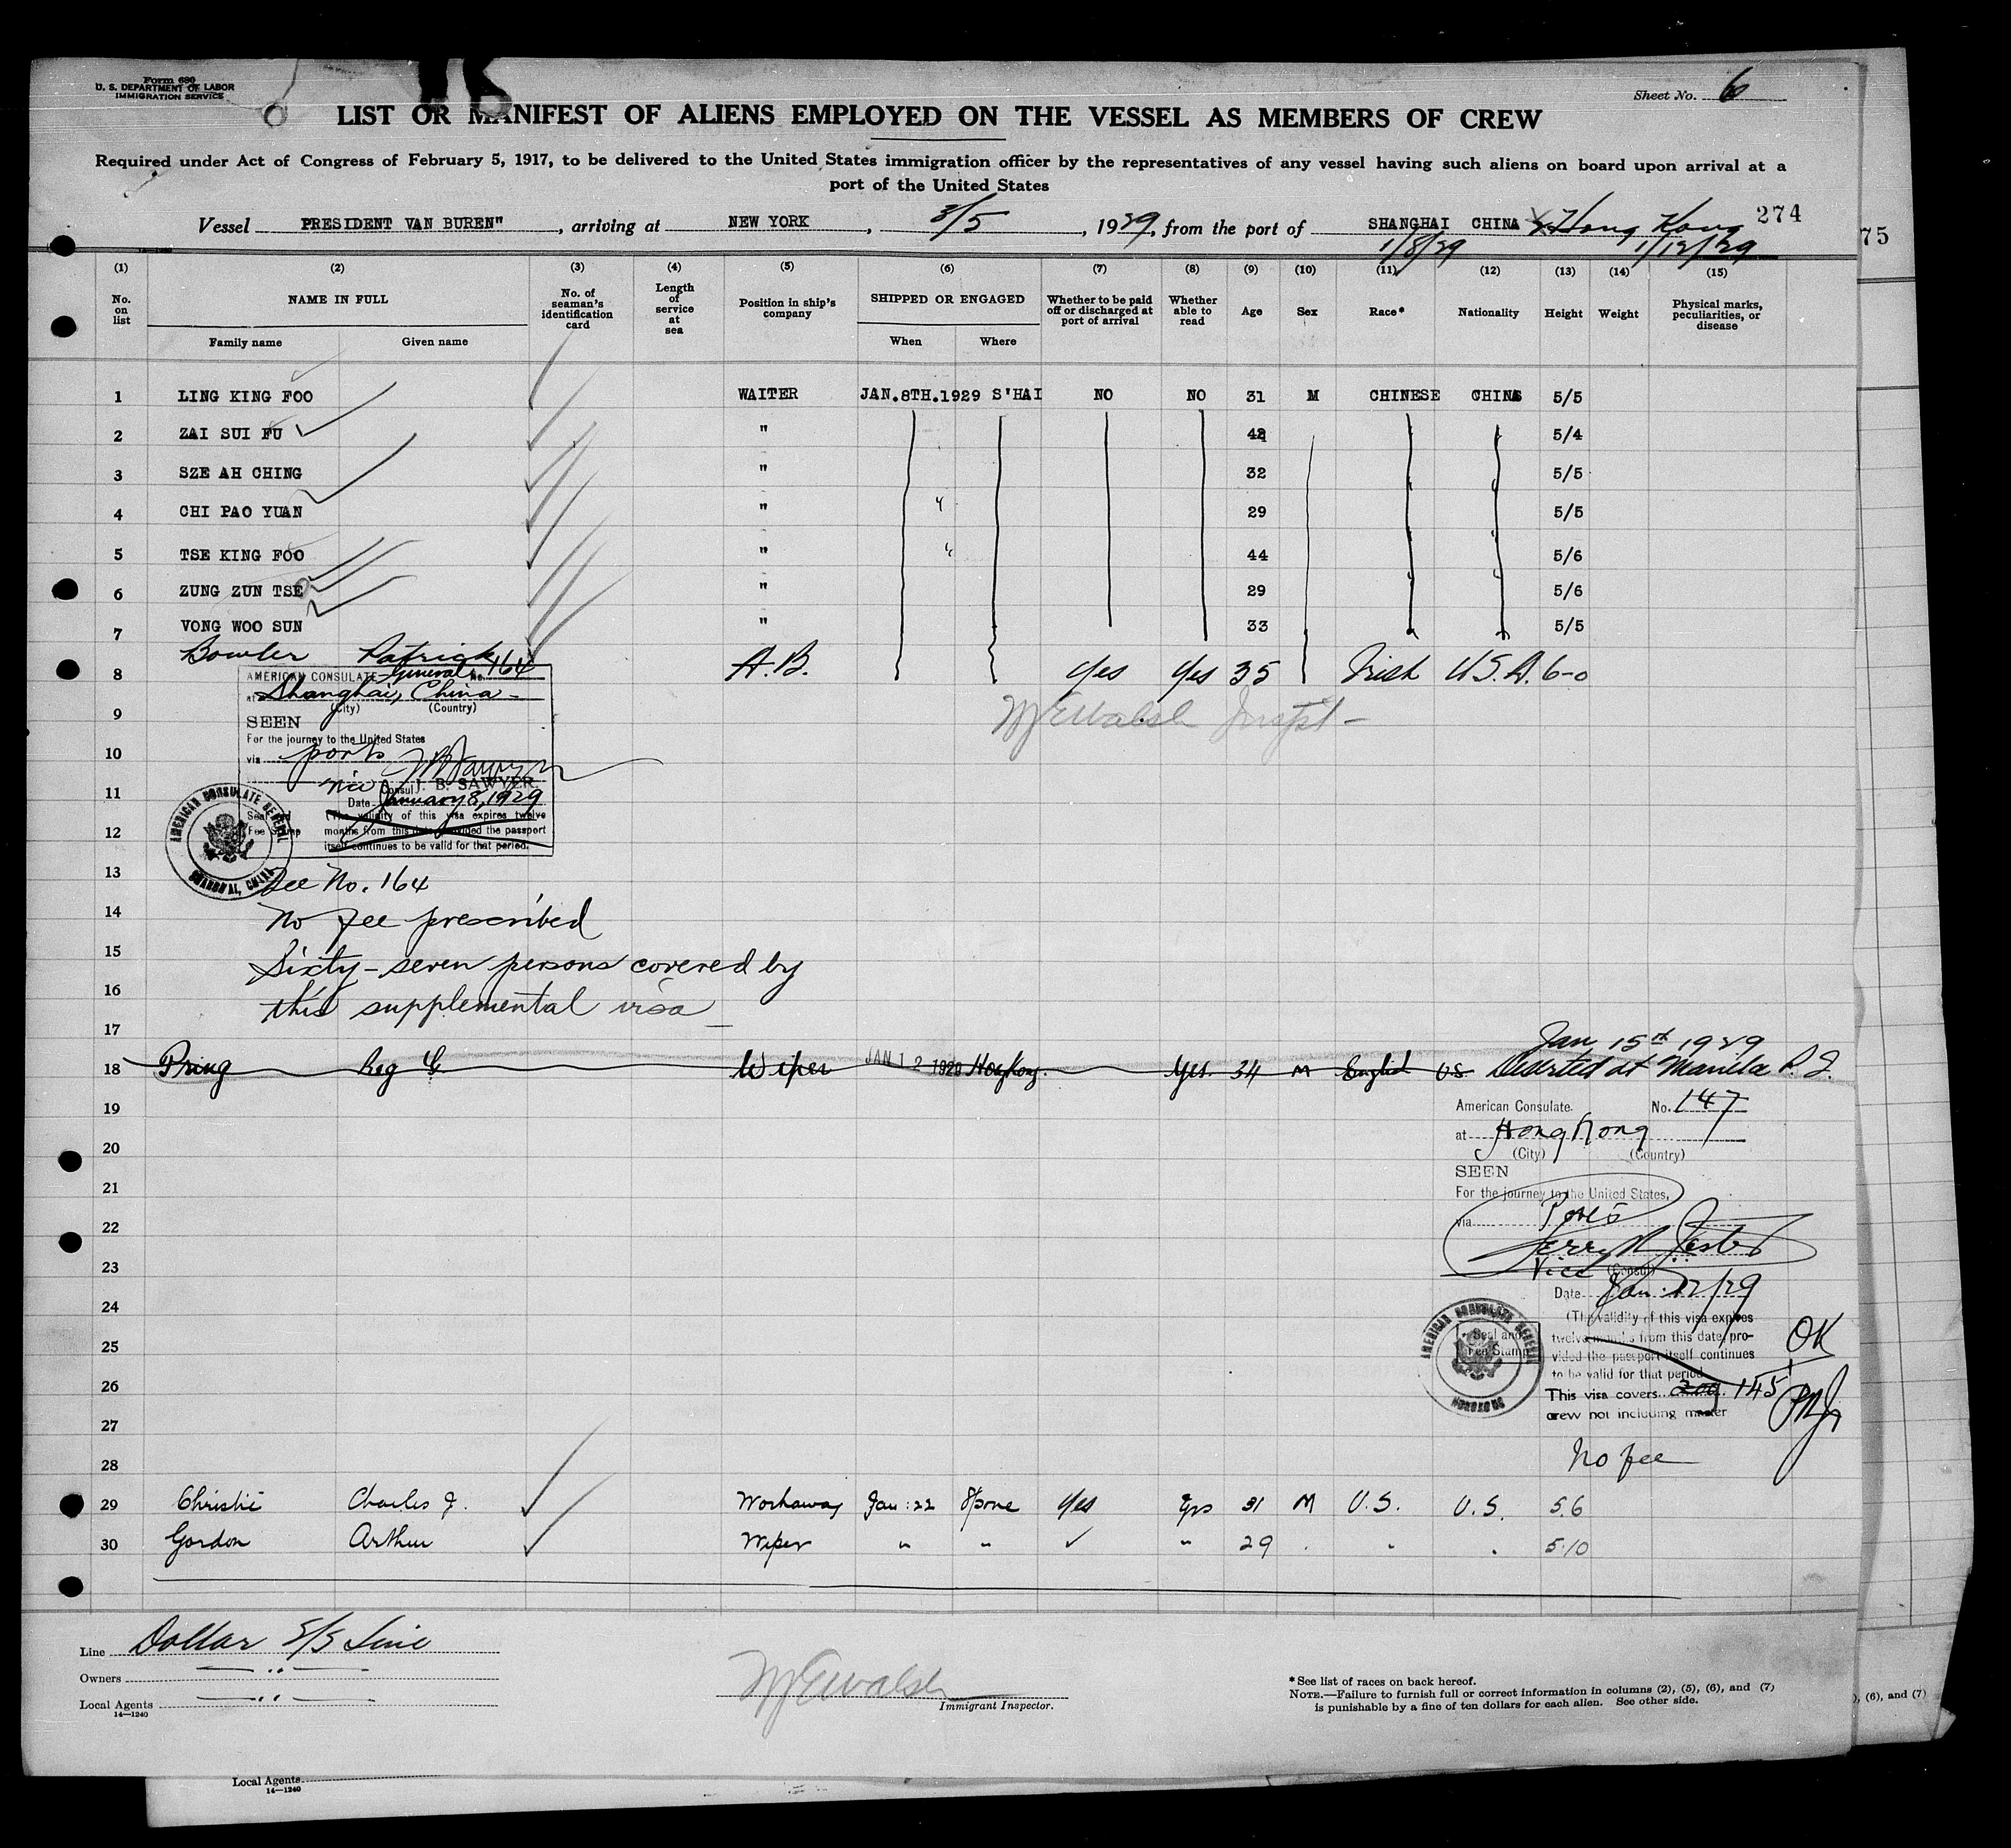 Form 680
U. S. DEPARTMENT OF LABOR
IMMIGRATION SERVICE
Sheet No. 6
LIST OR MANIFEST OF ALIENS EMPLOYED ON THE VESSEL AS MEMBERS OF CREW
Required under Act of Congress of February 5, 1917, to be delivered to the United States immigration officer by the representatives of any vessel having such aliens on board upon arrival at a
port of the United States
274
75
Vessel PRESIDENT VAN BUREN", arriving at NEW YORK, 3/5, 1929, from the port of SHANGHAI CHINA & Hong Kong
1/8/29 1/12/29
(1) (2) (3) (4) (5) (6) (7) (8) (9) (10) (11) (12) (13) (14) (15)
No. on list NAME IN FULL No. of seaman's identification card Length of service at sea Position in ship's company SHIPPED OR ENGAGED Whether to be paid off or discharged at port of arrival Whether able to read Age Sex Race* Nationality Height Weight Physical marks, peculiarities, or disease
Family name Given name When Where
1 LING KING FOO WAITER JAN.8TH.1929 S'HAI NO NO 31 M CHINESE CHINA 5/5
2 ZAI SUI FU " 42 5/4
3 SZE AH CHING " 32 5/5
4 CHI PAO YUAN " 29 5/5
5 TSE KING FOO " 44 5/6
6 ZUNG ZUN TSE " 29 5/6
7 VONG WOO SUN " 33 5/5
8 Bowler Patrick A.B. Yes Yes 35 Irish U.S.A. 6-0
AMERICAN CONSULATE General No. 164
at Shanghai, China
(City) (Country)
9
SEEN
For the journey to the United States
10
via ports
Vice Consul J. B. SAWYER
11
Date January 8, 1929
Seal and Fee Stamp
(The validity of this visa expires twelve
12
months from this date provided the passport
itself continues to be valid for that period.
AMERICAN CONSULATE GENERAL
SHANGHAI, CHINA
13 Fee No. 164
14 No fee prescribed
15 Sixty-seven persons covered by
16 this supplemental visa
17
Jan 15th 1929
18 Pring Reg C Wiper JAN 12 1929 Hong Kong. Yes. 34 M English US Deserted at Manila P.I.
19 American Consulate. No. 147
at Hong Kong
20
(City) (Country)
SEEN
21
For the journey to the United States,
22
via Ports
23
Vice (Consul)
Date Jan. 12/29
24
(The validity of this visa expires
25
twelve months from this date, pro-
vided the passport itself continues
to be valid for that period
OK
26
This visa covers 209 145
crew not including master
Seal and Fee Stamp
AMERICAN CONSULATE GENERAL
HONGKONG
27
28 No fee
29 Christie Charles J. Workaway Jan: 22 S'pore Yes Yes 31 M U.S. U.S. 5.6
30 Gordon Arthur Wiper " " " 29 5.10
Line Dollar S/S Line
Owners — " —
Local Agents — " —
14—1240
Immigrant Inspector.
* See list of races on back hereof.
NOTE.—Failure to furnish full or correct information in columns (2), (5), (6), and (7)
is punishable by a fine of ten dollars for each alien. See other side.
), (6), and (7)
Local Agents
14—1240